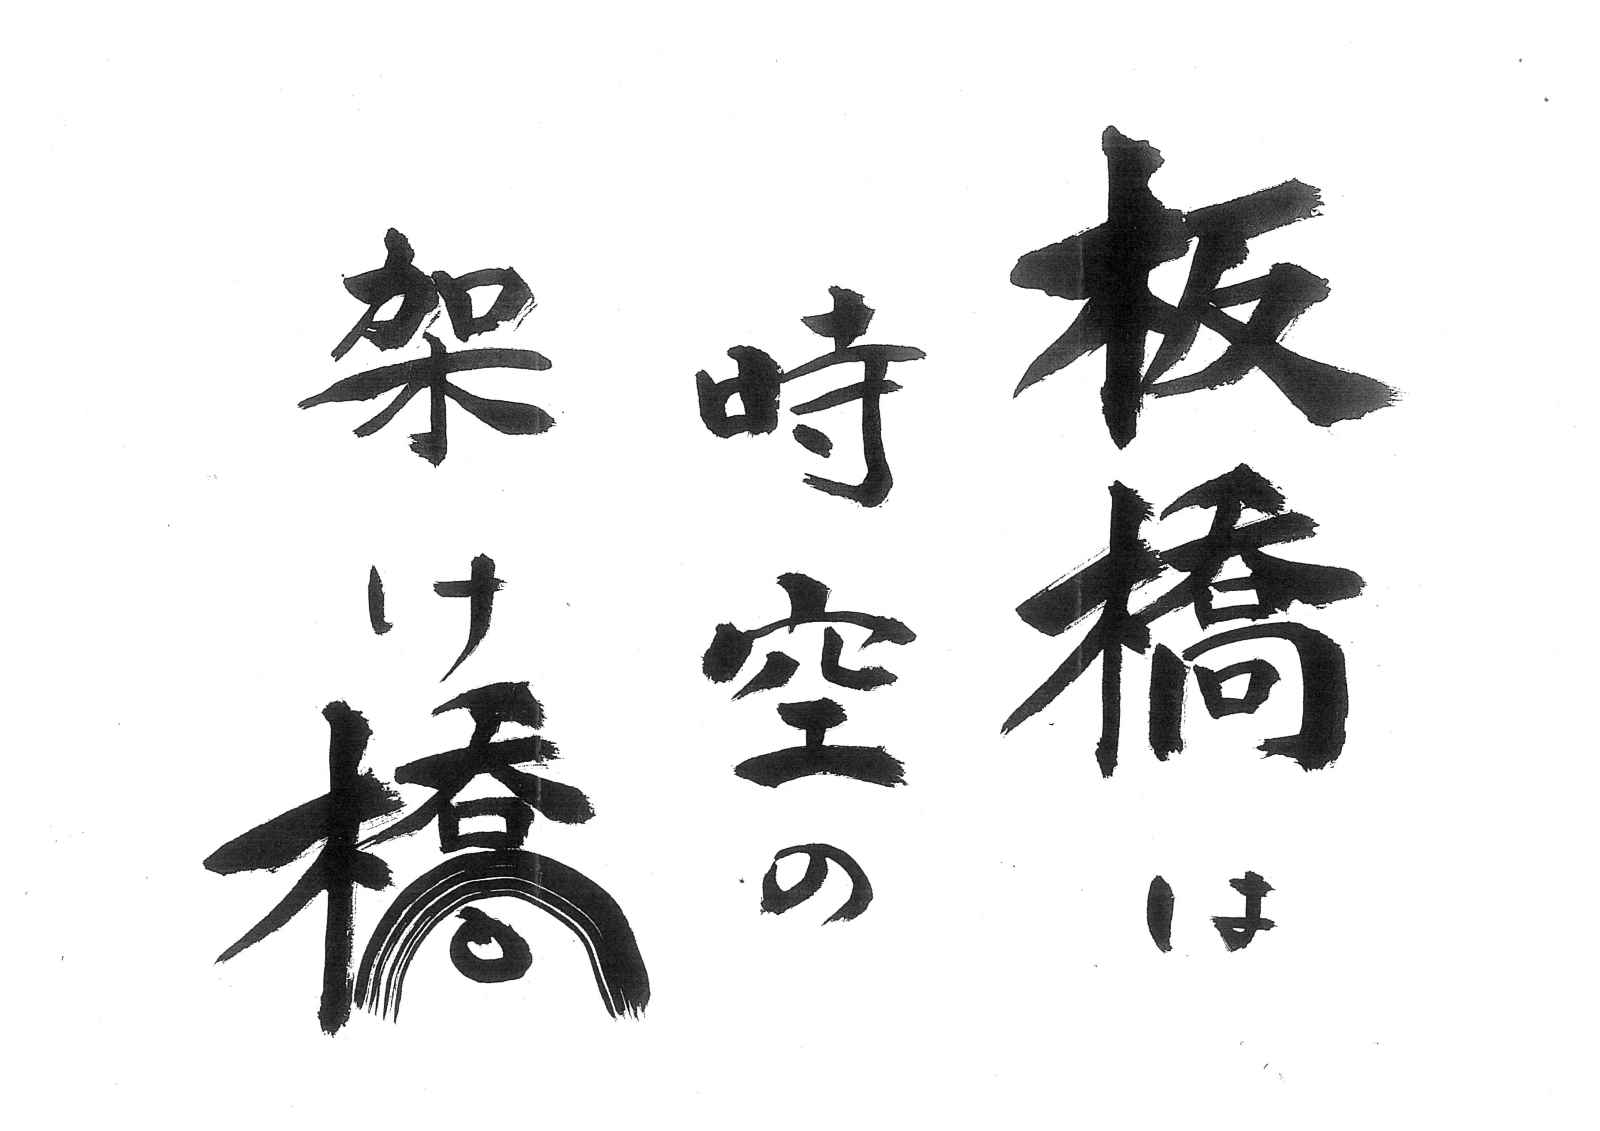 板橋は
時空の
架け橋